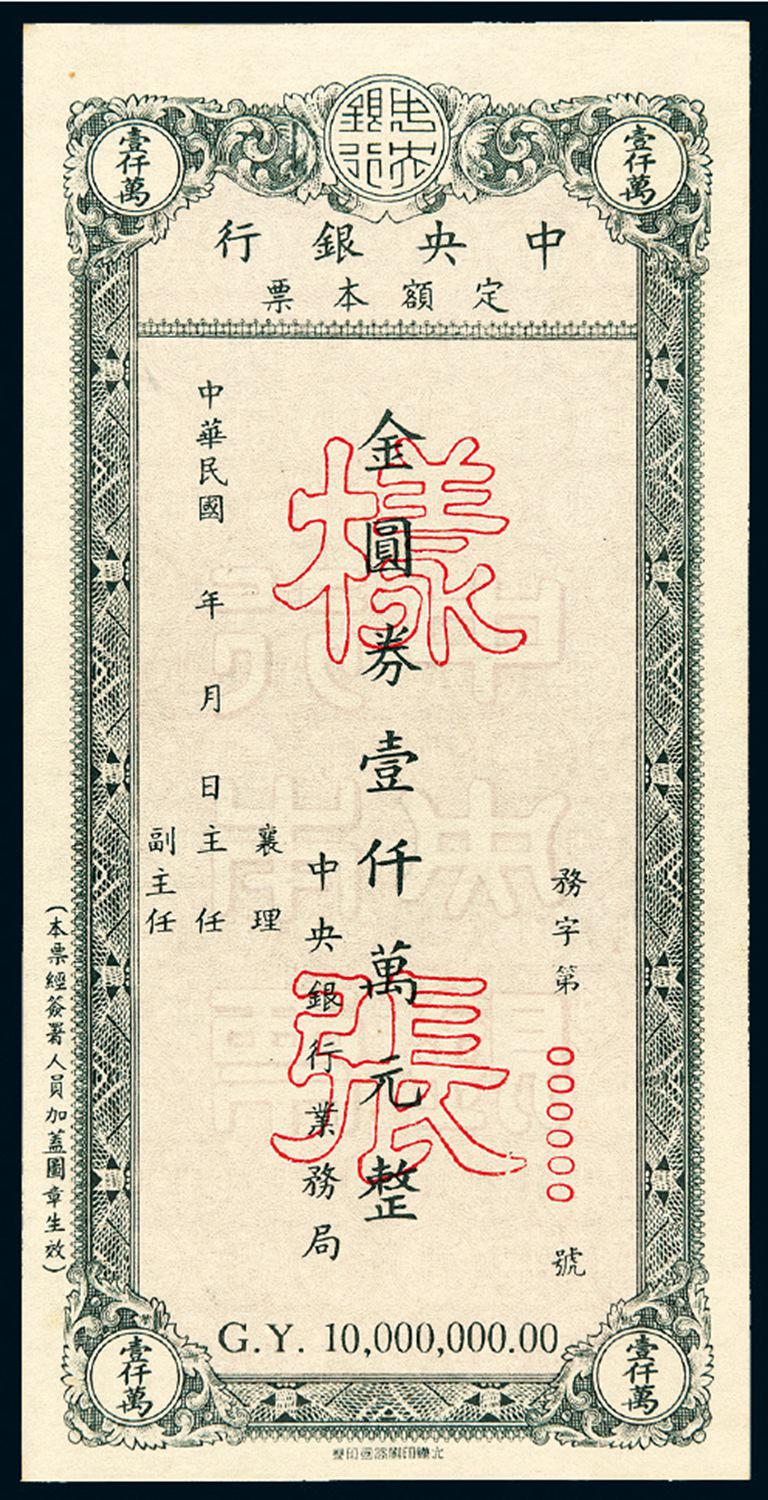 壹仟萬
中央銀行
壹仟萬
中央銀行
定額本票
務字第000000號
金圓券壹仟萬元整
樣張
中央銀行業務局
襄理
主任
副主任
中華民國 年 月 日
(本票經簽署人員加蓋圖章生效)
G.Y. 10,000,000.00
壹仟萬
壹仟萬